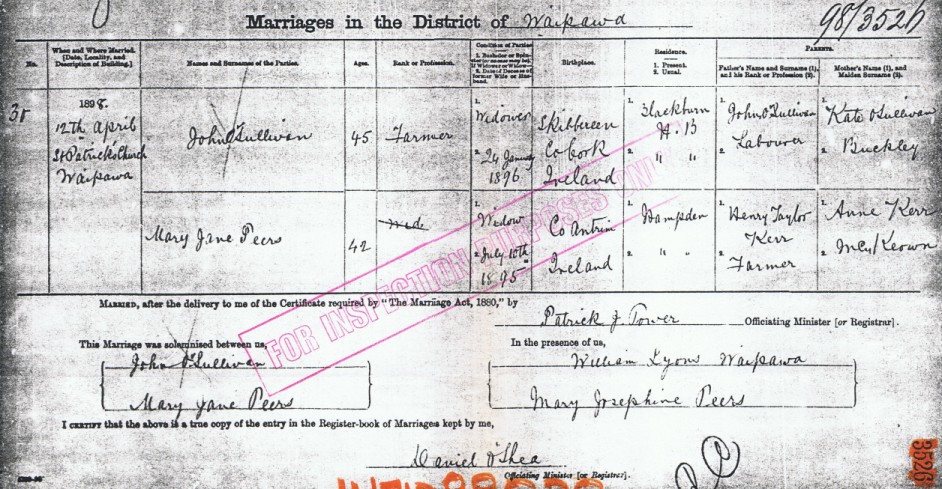 Marriages in the District of Waipawa
98/3526
No.
When and Where Married. [Date, Locality, and Description of Building.]
Names and Surnames of the Parties.
Ages.
Rank or Profession.
Condition of Parties
1. Bachelor or Spinster (or as case may be). If Widower or Widow—
2. Date of Decease of former Wife or Husband.
Birthplace.
Residence.
1. Present.
2. Usual.
PARENTS.
Father's Name and Surname (1), and his Rank or Profession (2).
Mother's Name (1), and Maiden Surname (2).
1898.
12th April
St Patrick's Church
Waipawa
John O'Sullivan
45
Farmer
1. Widower
2. 24 January 1896
Skibbereen
Co Cork
Ireland
1. Blackburn
H.B
2. " "
1. John O'Sullivan
2. Labourer
1. Kate O'Sullivan
2. Buckley
Mary Jane Peers
42
Wid.
1. Widow
2. July 10th 1895
Co Antrim
Ireland
1. Hampden
2. " "
1. Henry Taylor Kerr
2. Farmer
1. Anne Kerr
2. McKeown
MARRIED, after the delivery to me of the Certificate required by "The Marriage Act, 1880," by
Patrick J. Power Officiating Minister [or Registrar].
This Marriage was solemnised between us,
John O'Sullivan
Mary Jane Peers
In the presence of us,
William Lyons Waipawa
Mary Josephine Peers
I CERTIFY that the above is a true copy of the entry in the Register-book of Marriages kept by me,
David O'Shea
Officiating Minister [or Registrar].
FOR INSPECTION PURPOSES ON
3526